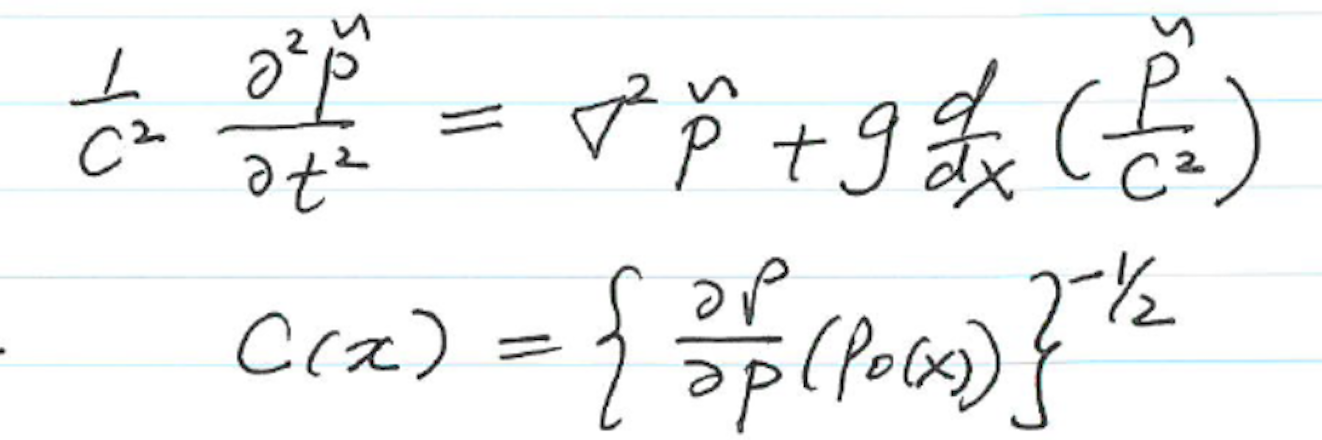 \frac{1}{c^2} \frac{\partial^2 \tilde{p}}{\partial t^2} = \nabla^2 \tilde{p} + g \frac{d}{dx} \left( \frac{\tilde{p}}{c^2} \right)
C(x) = \left\{ \frac{\partial \rho}{\partial p} (p_0(x)) \right\}^{-1/2}